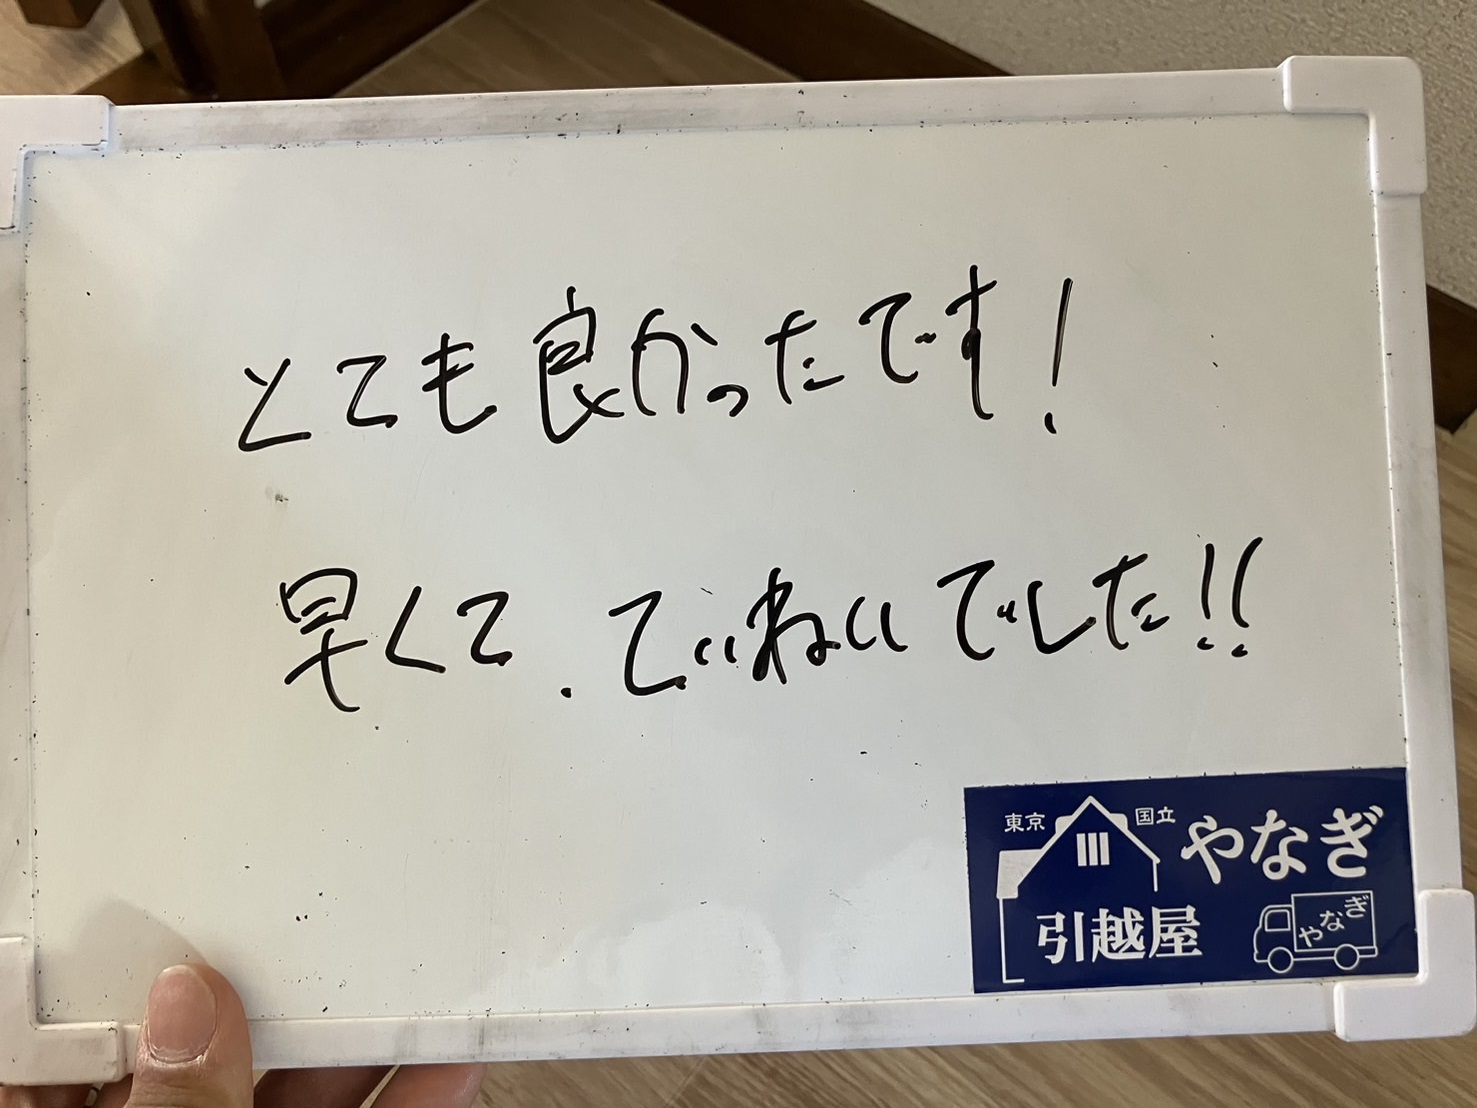 とても良かったです!
早くて、ていねいでした!!
東京 国立 やなぎ
引越屋
やなぎ